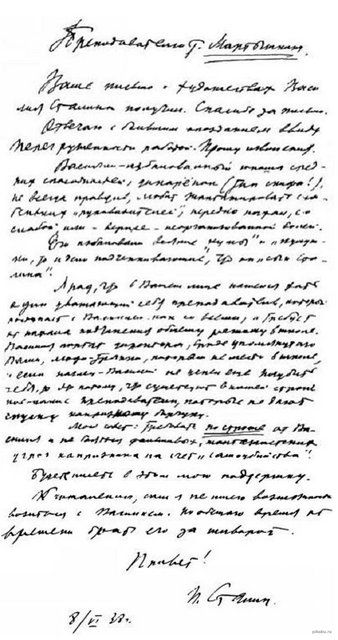 Преподавателю т. Мартышину.
Ваше письмо о художествах Васи-
лия Сталина получил. Спасибо за письмо.
Отвечаю с большим опозданием ввиду
перегруженности работой. Прошу извинения.
Василий – избалованный юноша сред-
них способностей, дикарёнок (тип скифа!),
не всегда правдив, любит шантажировать сла-
беньких "руководителей", нередко нахал, со
слабой или – вернее – неорганизованной волей.
Его избаловали всякие "кумы" и "кумуш-
ки", то и дело подчеркивающие, что он "сын Ста-
лина".
Я рад, что в Вашем лице нашелся хоть
один уважающий себя преподаватель, который
поступает с Василием, как со всеми, и требует
от нахала подчинения общему режиму в школе.
Василия портят директора, вроде упомянутого
Вами, люди-тряпки, которым не место в школе,
и если наглец-Василий не успел еще погубить
себя, то это потому, что существуют в нашей стране
кое-какие преподаватели, которые не дают
спуску капризному барчуку.
Мой совет: требовать построже от Ва-
силия и не бояться фальшивых, шантажистских
угроз капризника насчет "самоубийства".
Будете иметь в этом мою поддержку.
К сожалению, сам я не имею возможности
возиться с Василием. Но обещаю время от
времени брать его за шиворот.
Привет!
И. Сталин.
8/VI 38 г.
pikabu.ru